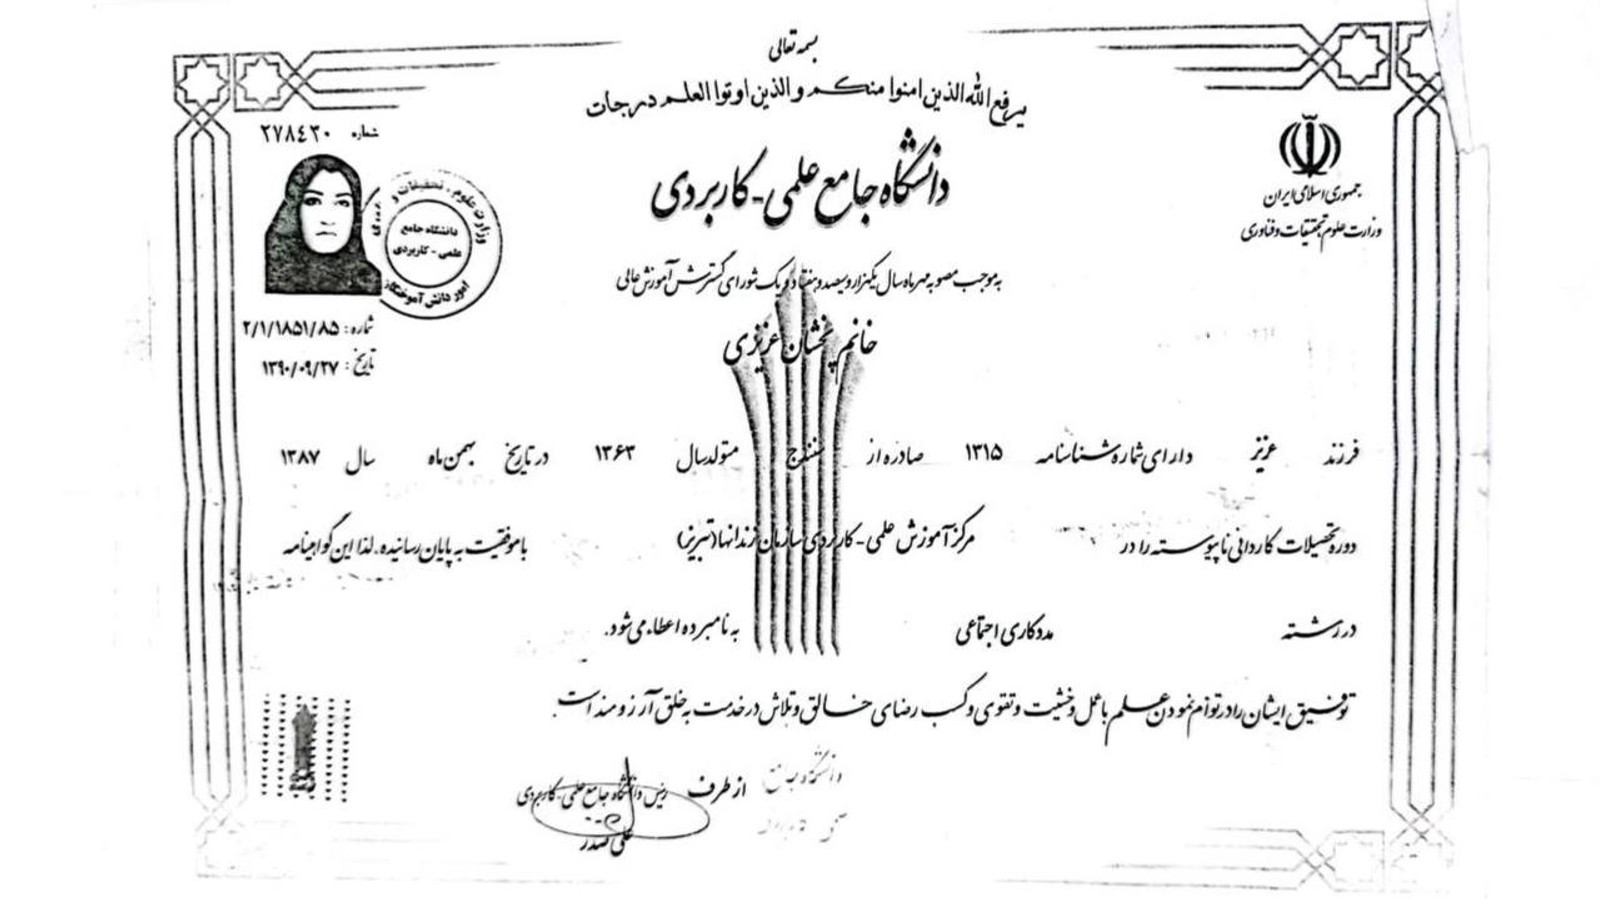 بسمه تعالی
یرفع الله الذین امنوا منکم والذین اوتوا العلم درجات
دانشگاه جامع علمی-کاربردی
جمهوری اسلامی ایران
وزارت علوم، تحقیقات و فناوری
شماره ۲۷۸۴۳۰
وزارت علوم، تحقیقات و
دانشگاه جامع
علمی-کاربردی
امور دانش آموختگان
شماره: ۲/۱/۱۸۵۱/۸۵
تاریخ: ۱۳۹۰/۰۹/۲۷
به موجب مصوبه مهرماه سال یکهزار و سیصد و هفتاد و یک شورای گسترش آموزش عالی
خانم پخشان عزیزی
فرزند عزیز دارای شماره شناسنامه ۱۳۱۵ صادره از سنندج متولد سال ۱۳۶۳ در تاریخ بهمن ماه سال ۱۳۸۷
دوره تحصیلات کاردانی ناپیوسته را در مرکز آموزش علمی-کاربردی سازمان زندانها (تبریز) با موفقیت به پایان رسانیده. لذا این گواهینامه
در رشته مددکاری اجتماعی به نامبرده اعطاء می شود.
توفیق ایشان را در توأم نمودن علم با عمل و خشیت و تقوی و کسب رضای خالق و تلاش در خدمت به خلق آرزومند است.
دانشگاه جامع
از طرف رئیس دانشگاه جامع علمی-کاربردی
علی صدر